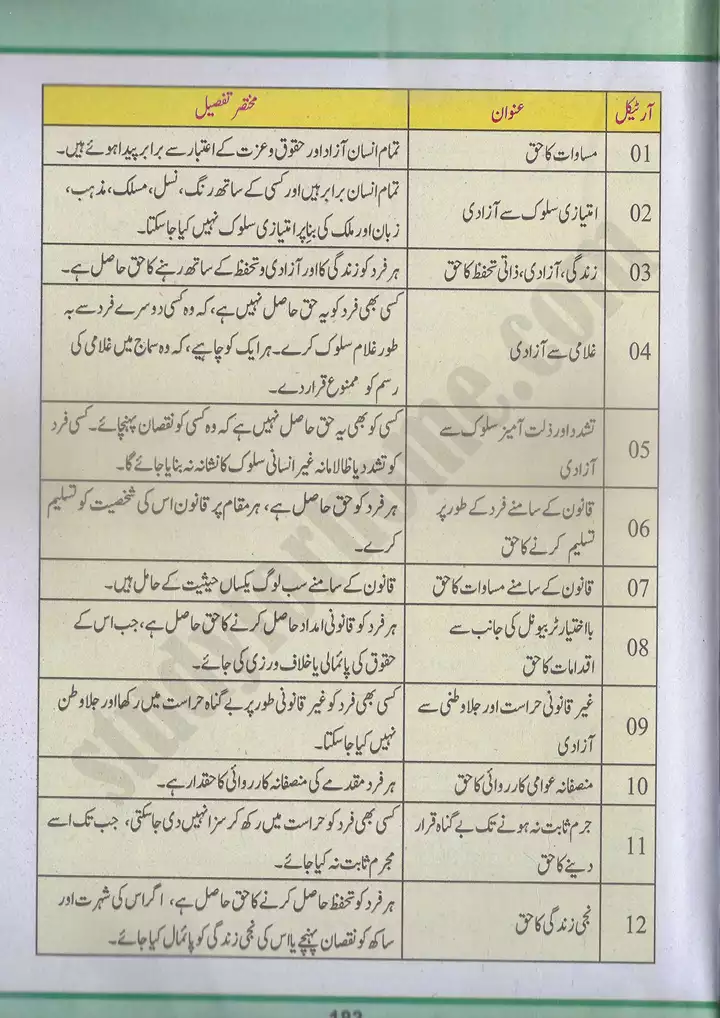 آرٹیکل عنوان مختصر تفصیل
01 مساوات کا حق تمام انسان آزاد اور حقوق و عزت کے اعتبار سے برابر پیدا ہوئے ہیں۔
02 امتیازی سلوک سے آزادی تمام انسان برابر ہیں اور کسی کے ساتھ رنگ، نسل، مسلک، مذہب،
زبان اور ملک کی بنا پر امتیازی سلوک نہیں کیا جا سکتا۔
03 زندگی، آزادی، ذاتی تحفظ کا حق ہر فرد کو زندگی کا اور آزادی و تحفظ کے ساتھ رہنے کا حق حاصل ہے۔
04 غلامی سے آزادی کسی بھی فرد کو یہ حق حاصل نہیں ہے، کہ وہ کسی دوسرے فرد سے بہ
طور غلام سلوک کرے۔ ہر ایک کو چاہیے، کہ وہ سماج میں غلامی کی
رسم کو ممنوع قرار دے۔
05 تشدد اور ذلت آمیز سلوک سے کسی کو بھی یہ حق حاصل نہیں ہے کہ وہ کسی کو نقصان پہنچائے۔ کسی فرد
آزادی کو تشدد یا ظالمانہ غیر انسانی سلوک کا نشانہ نہ بنایا جائے گا۔
06 قانون کے سامنے فرد کے طور پر ہر فرد کو حق حاصل ہے، ہر مقام پر قانون اس کی شخصیت کو تسلیم
تسلیم کرنے کا حق کرے۔
07 قانون کے سامنے مساوات کا حق قانون کے سامنے سب لوگ یکساں حیثیت کے حامل ہیں۔
08 بااختیار ٹربیونل کی جانب سے ہر فرد کو قانونی امداد حاصل کرنے کا حق حاصل ہے، جب اس کے
اقدامات کا حق حقوق کی پائمالی یا خلاف ورزی کی جائے۔
09 غیر قانونی حراست اور جلا وطنی سے کسی بھی فرد کو غیر قانونی طور پر بے گناہ حراست میں رکھا اور جلا وطن
آزادی نہیں کیا جا سکتا۔
10 منصفانہ عوامی کارروائی کا حق ہر فرد مقدمے کی منصفانہ کارروائی کا حقدار ہے۔
11 جرم ثابت نہ ہونے تک بے گناہ قرار کسی بھی فرد کو حراست میں رکھ کر سزا نہیں دی جا سکتی، جب تک اسے
دینے کا حق مجرم ثابت نہ کیا جائے۔
12 نجی زندگی کا حق ہر فرد کو تحفظ حاصل کرنے کا حق حاصل ہے، اگر اس کی شہرت اور
ساکھ کو نقصان پہنچے یا اس کی نجی زندگی کو پائمال کیا جائے۔